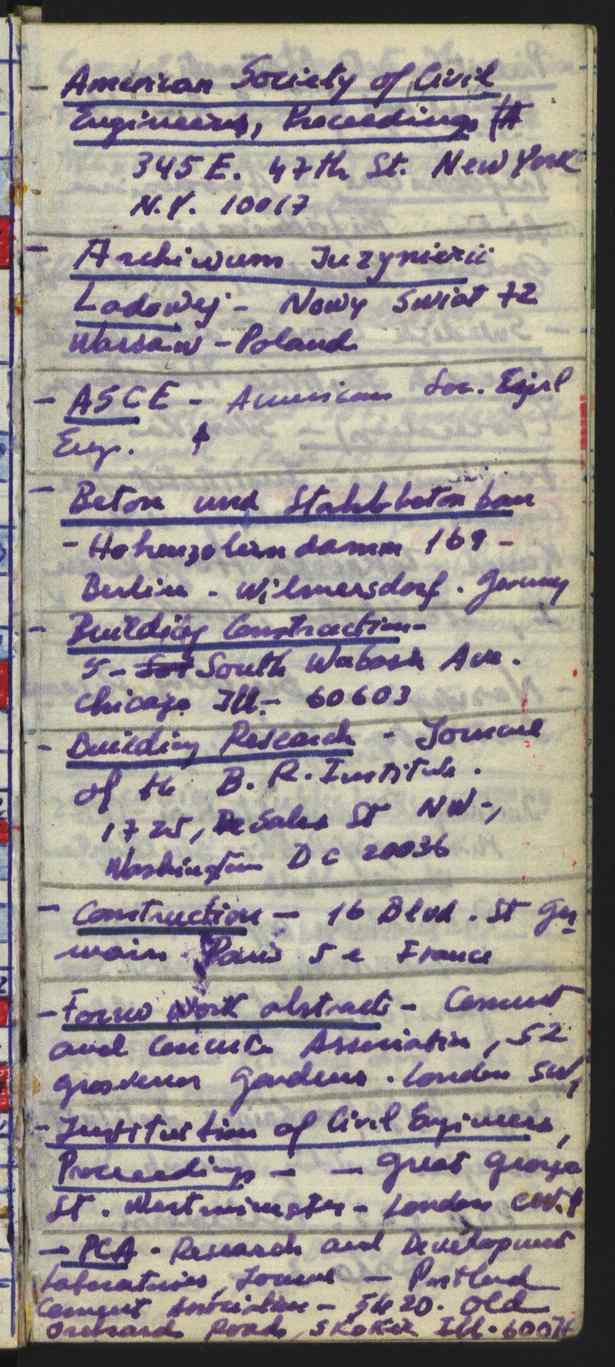 - American Society of Civil
Engineers, Proceedings
345 E. 47th St. New York
N.Y. 10017
- Archiwum Inzynierii
Ladowej - Nowy Swiat 72
Warsaw - Poland
- ASCE - American Soc. Civil
Eng.
- Beton und Stahlbetonbau
- Hohenzolerndamm 169 -
Berlin - Wilmersdorf. Germany
- Building Construction -
5 - South Wabash Ave.
Chicago Ill - 60603
- Building Research - Journal
of the B. R. Institute.
1725, DeSales St NW -,
Washington DC 20036
- Construction - 16 Blvd. St Ger
main Paris 5e France
- Formwork abstracts - Cement
and Concrete Association, 52
grosvenor Gardens. London SW1
- Institution of Civil Engineers,
Proceedings - - Great George
St. Westminster - London
- PCA - Research and Development
Laboratories Journal - Portland
Cement Association - 5420. Old
Orchard Road, Skokie Ill. 60076